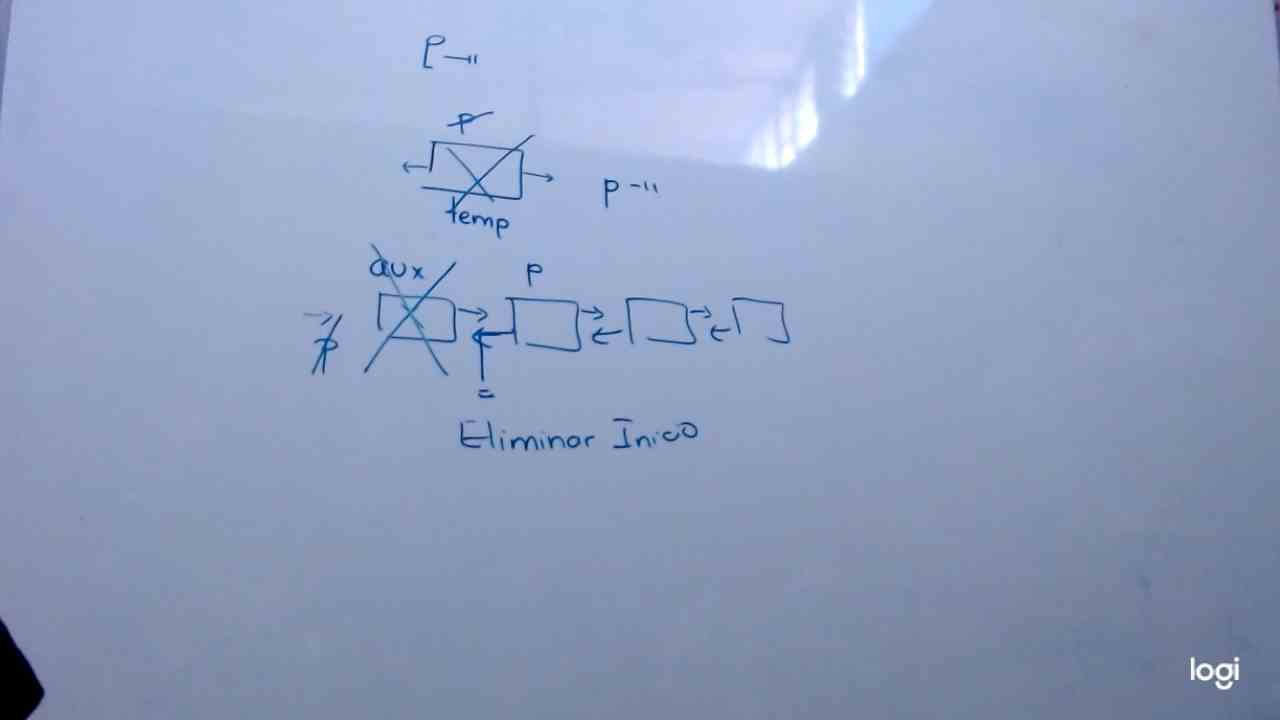 P
P
temp
P
aux
P
P
=
Eliminar Inico
logi